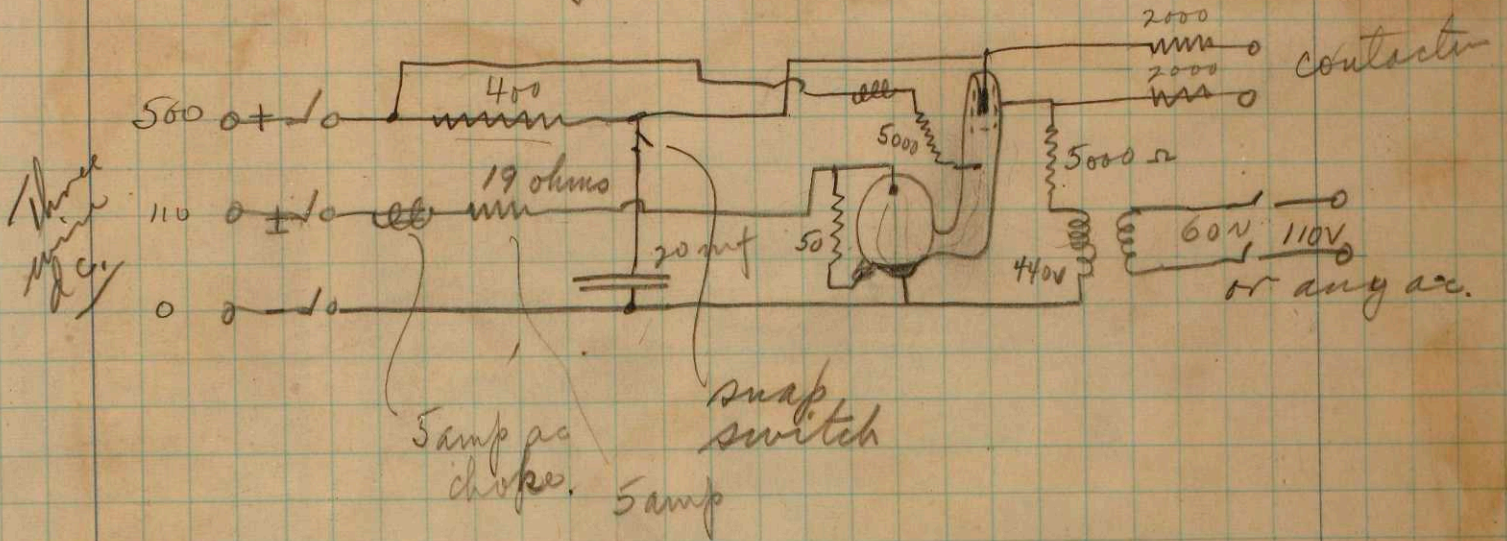 2000
contactor
2000
500
400
5000
5000 Ω
Three
wire
d.c.
110
19 ohms
50
20 mf
440v
60~ 110V
or any a.c.
0
snap
switch
5 amp ac
choke.
5 amp